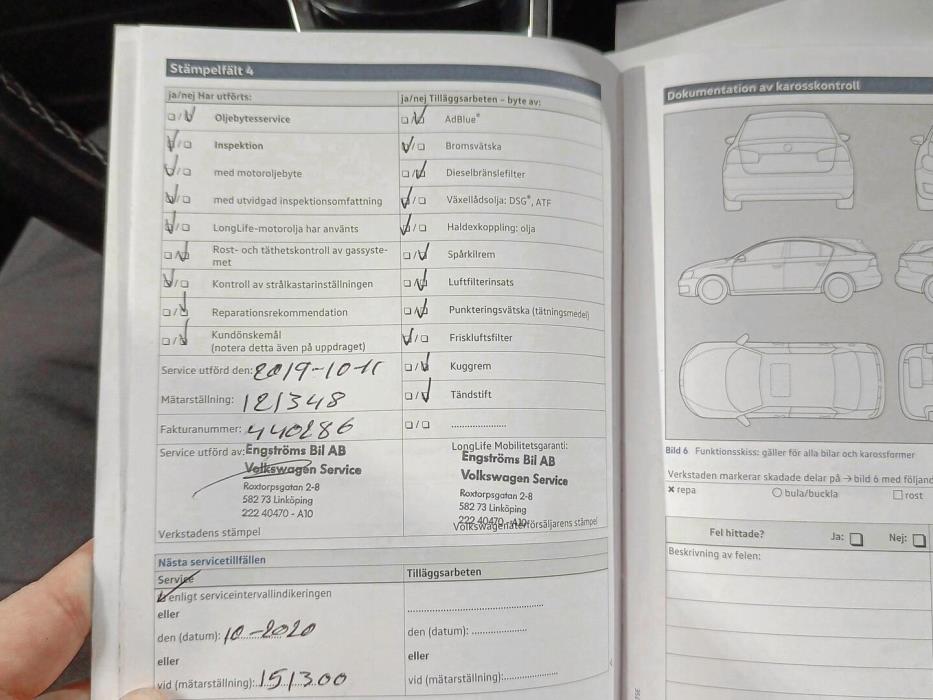 Stämpelfält 4
ja/nej Har utförts:
Oljebytesservice
Inspektion
med motoroljebyte
med utvidgad inspektionsomfattning
LongLife-motorolja har använts
Rost- och täthetskontroll av gassyste-
met
Kontroll av strålkastarinställningen
Reparationsrekommendation
Kundönskemål
(notera detta även på uppdraget)
Service utförd den: 2019-10-11
Mätarställning: 121348
Fakturanummer: 440286
Service utförd av: Engströms Bil AB
Volkswagen Service
Roxtorpsgatan 2-8
582 73 Linköping
222 40470 - A10
Verkstadens stämpel
ja/nej Tilläggsarbeten – byte av:
AdBlue®
Bromsvätska
Dieselbränslefilter
Växellådsolja: DSG®, ATF
Haldexkoppling: olja
Spårkilrem
Luftfilterinsats
Punkteringsvätska (tätningsmedel)
Friskluftsfilter
Kuggrem
Tändstift
LongLife Mobilitetsgaranti:
Engströms Bil AB
Volkswagen Service
Roxtorpsgatan 2-8
582 73 Linköping
222 40470 - A10
Volkswagenåterförsäljarens stämpel
Nästa servicetillfällen
Service
enligt serviceintervallindikeringen
eller
den (datum): 10-2020
eller
vid (mätarställning): 151300
Tilläggsarbeten
den (datum):
eller
vid (mätarställning):
Dokumentation av karosskontroll
Bild 6 Funktionsskiss: gäller för alla bilar och karossformer
Verkstaden markerar skadade delar på → bild 6 med följand
x repa
bula/buckla
rost
Fel hittade? Ja: Nej:
Beskrivning av felen: